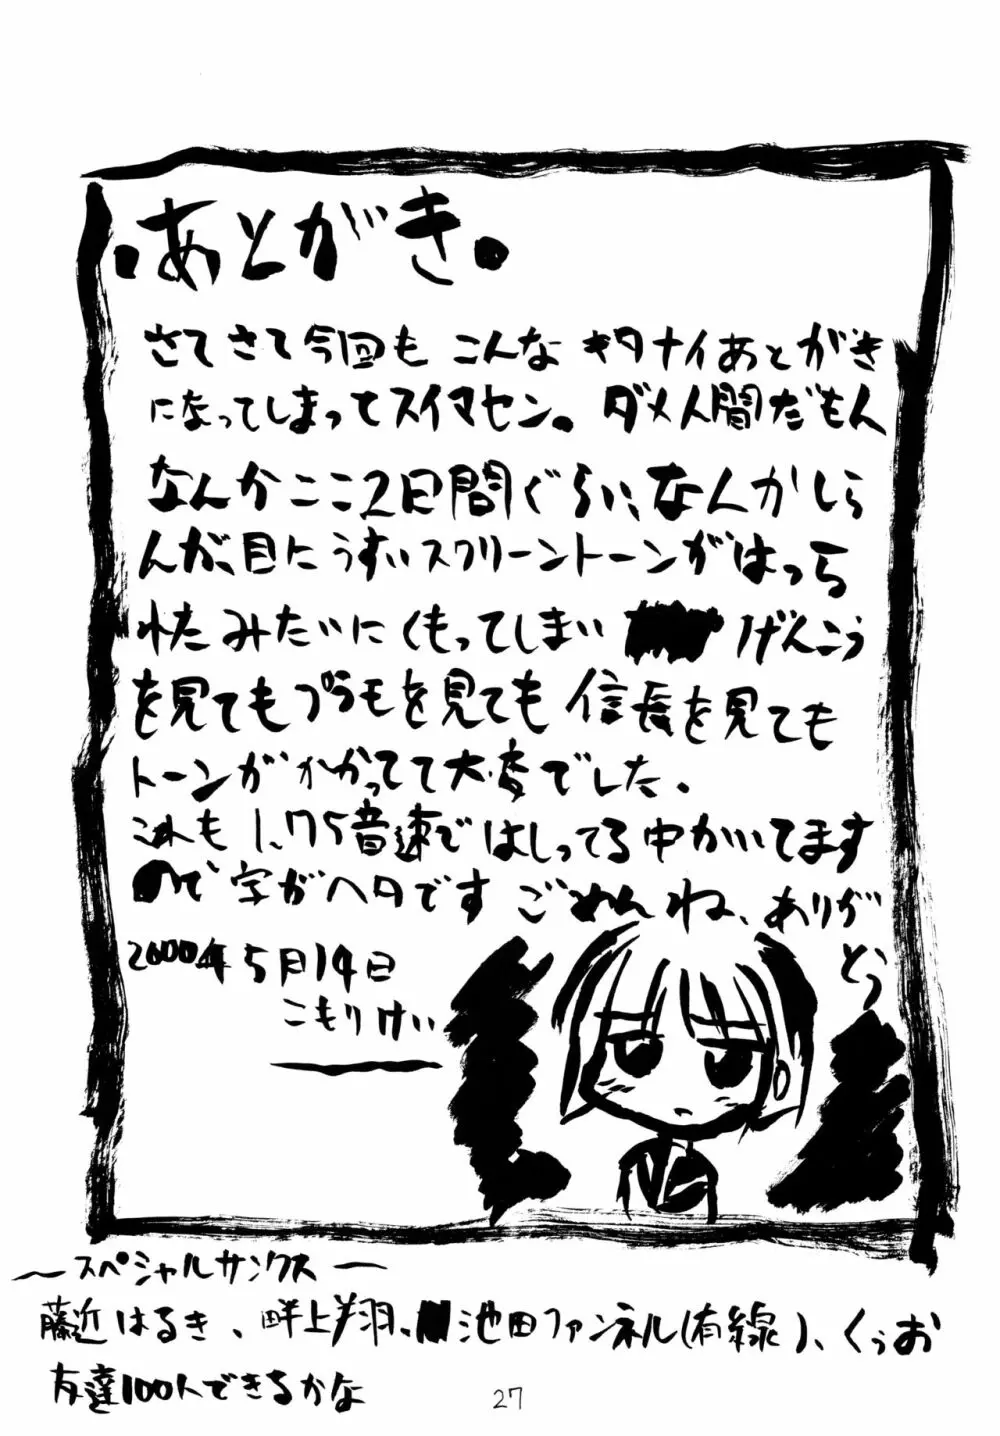 ・あとがき。
さてさて今回も こんな キタナイあとがき
になってしまってスイマセン。 ダメ人間だもん
なんかここ2日間ぐらい、なんかしら
んが、目にうすいスクリーントーンがはっら
れたみたいにくもってしまい げんこう
を見てもプラモを見ても 信長を見ても
トーンがかかってて大変でした。
これも 1.75音速で はしってる中かいてます
ので字がヘタです ごめんね、ありが
とう
2000年5月14日
こもりけい
〜スペシャルサンクス〜
藤近はるき、畔上翔、池田ファンネル(有線)、くぅお
友達100人できるかな
27